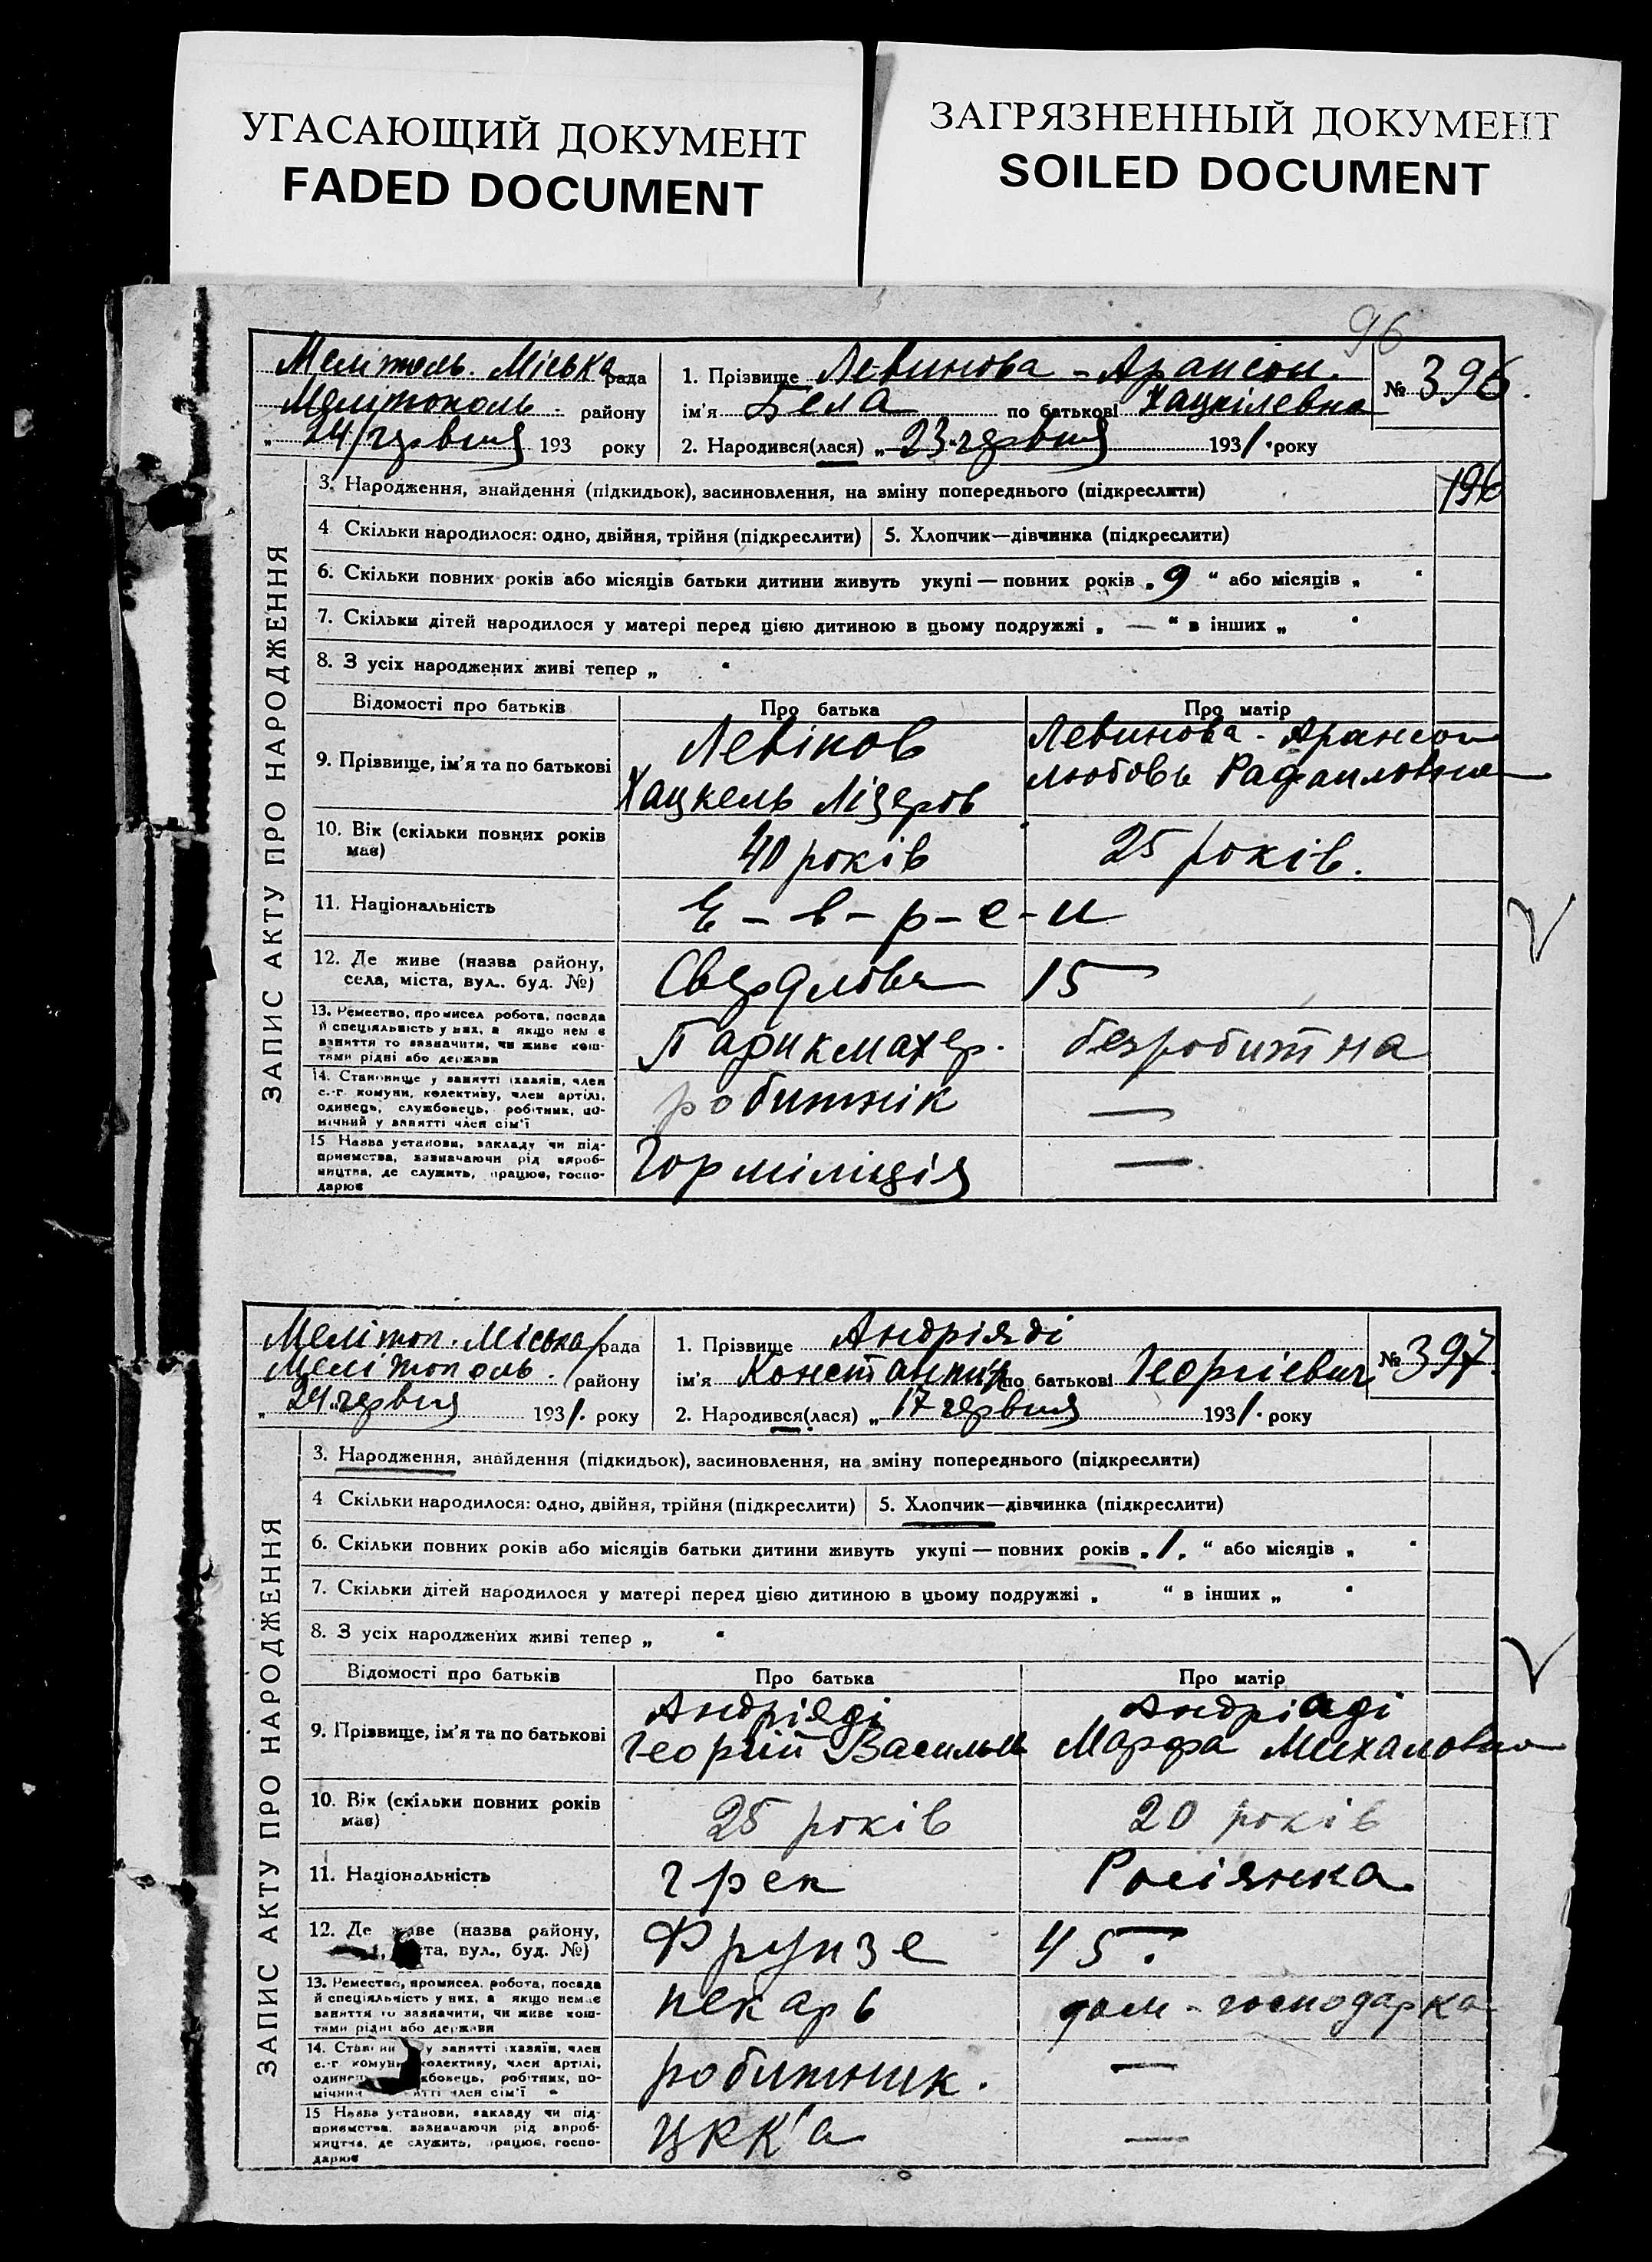 УГАСАЮЩИЙ ДОКУМЕНТ
FADED DOCUMENT
ЗАГРЯЗНЕННЫЙ ДОКУМЕНТ
SOILED DOCUMENT
96
Мелітоль. Міська рада
Мелітополь району
„ 24/червня 193 року
1. Прізвище Левинова - Арансон.
ім'я Бела по батькові Хацкілевна
2. Народився(лася) „ 23 " червня 1931. року
№ 396.
196
ЗАПИС АКТУ ПРО НАРОДЖЕННЯ
3. Народження, знайдення (підкидьок), засиновлення, на зміну попереднього (підкреслити)
4 Скільки народилося: одно, двійня, трійня (підкреслити) 5. Хлопчик—дівчинка (підкреслити)
6. Скільки повних років або місяців батьки дитини живуть укупі — повних років „ 9 " або місяців „ "
7. Скільки дітей народилося у матері перед цією дитиною в цьому подружжі „ — " в інших „ "
8. З усіх народжених живі тепер „ "
Відомості про батьків Про батька Про матір
9. Прізвище, ім'я та по батькові
Левінов
Хацкель Лізеров
Левинова - Арансон
Любовь Рафаиловна
10. Вік (скільки повних років має)
40 років 25 років.
11. Національність Е - в - р - е - и
12. Де живе (назва району,
села, міста, вул.. буд. №)
Свердлова 15
13. Ремество, промисел робота, посада
й спеціяльність у них, а якщо нем є
заняття то зазначити, чи живе кош-
тами рідні або держави
Парикмахер. безробитна
14. Становище у занятті (хазяїн, член
с.-г. комуни, колективу, член артілі,
одинець, службовець, робітник, по-
мічний у занятті член сім'ї
робитнік —
15 Назва установи, закладу чи під-
приємства, зазначаючи рід вироб-
ництва, де служить, працює, госпо-
дарює
Горміліція —
Мелітоп. Міська рада
Мелітополь. району
„ 24 " червня 1931. року
1. Прізвище Андріяді
ім'я Константин по батькові Георгіевич
2. Народився(лася) „ 17 червня 1931. року
№ 397.
ЗАПИС АКТУ ПРО НАРОДЖЕННЯ
3. Народження, знайдення (підкидьок), засиновлення, на зміну попереднього (підкреслити)
4 Скільки народилося: одно, двійня, трійня (підкреслити) 5. Хлопчик—дівчинка (підкреслити)
6. Скільки повних років або місяців батьки дитини живуть укупі — повних років „ 1. " або місяців „ "
7. Скільки дітей народилося у матері перед цією дитиною в цьому подружжі „ " в інших „ "
8. З усіх народжених живі тепер „ "
Відомості про батьків Про батька Про матір
9. Прізвище, ім'я та по батькові
Андріяді
Георгій Васильв
Андріаді
Марфа Михаловна
10. Вік (скільки повних років має)
25 років 20 років
11. Національність грек Росіянка
12. Де живе (назва району,
та, вул., буд. №)
Фрунзе 45.
13. Ремество, промисел, робота, посада
й спеціяльність у них, а якщо немає
заняття то зазначити, чи живе кош-
тами рідні або держави
пекарь дом - господарка
14. у занятті (хазяїн, член
с.-г комуни колективу, член артілі,
робітник, по-
мічний член сім'ї
робитник. —
15 Назва установи, закладу чи під-
приємства, зазначаючи рід вироб-
ництва, де служить, працює, госпо-
дарює
ЦРК'а —